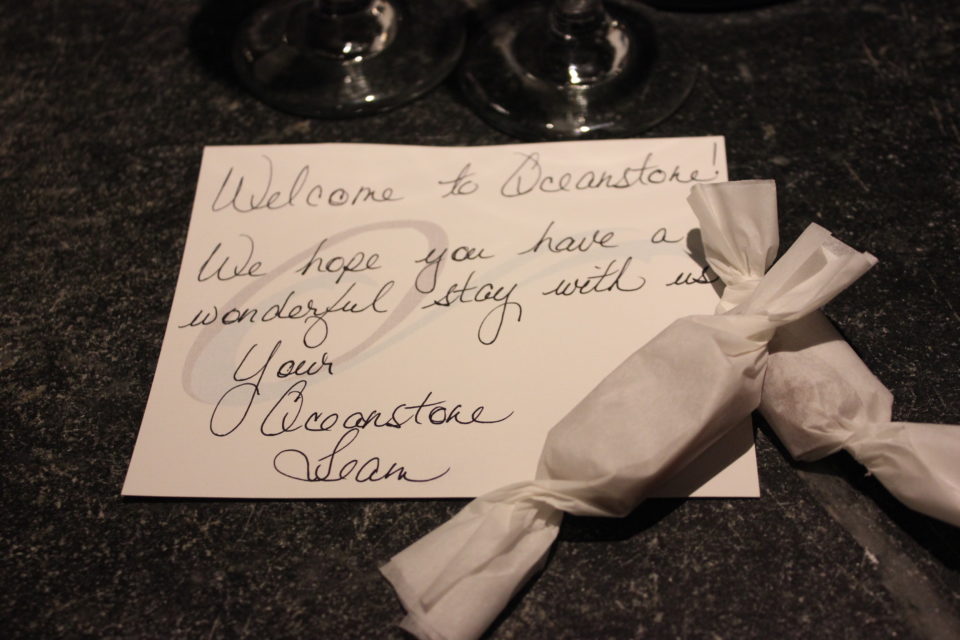 Welcome to Oceanstone!
We hope you have a
wonderful stay with us
Your
Oceanstone
Team